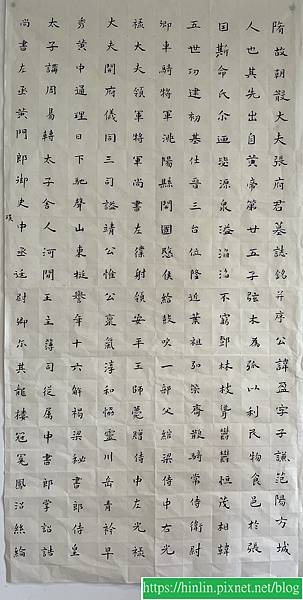 隋故朝散大夫張府君墓誌銘并序公諱盈字子謙范陽方城
人也其先出自黃帝第廿五子弦木為弧以利民物食邑於張
因斯命氏源泉溢滔滔不窮鄧林枝鬱鬱恒茂相韓
五世功建初基仕晉三台位隆近葉祖弘宋齊散騎常侍衛尉
卿車騎將軍洮陽縣開國愍侯給鼓吹一部父綰梁侍中右光
祿大夫領軍將軍尚書左僕射領安平王師薨贈侍中左光祿
大夫開府儀同三司謚靖公惟公稟氣淳和靈川岳青衿早
秀黃中通理日下馳聲山東挺譽年十六解褐梁秘書郎侍皇
太子講周易轉太子舍人河間王主簿司從屬中書郎掌詔誥
尚書左丞黃門郎御史中丞廷尉卿尔其龍樓冠冕鳳沼絲綸
https://hinlin.pixnet.net/blog